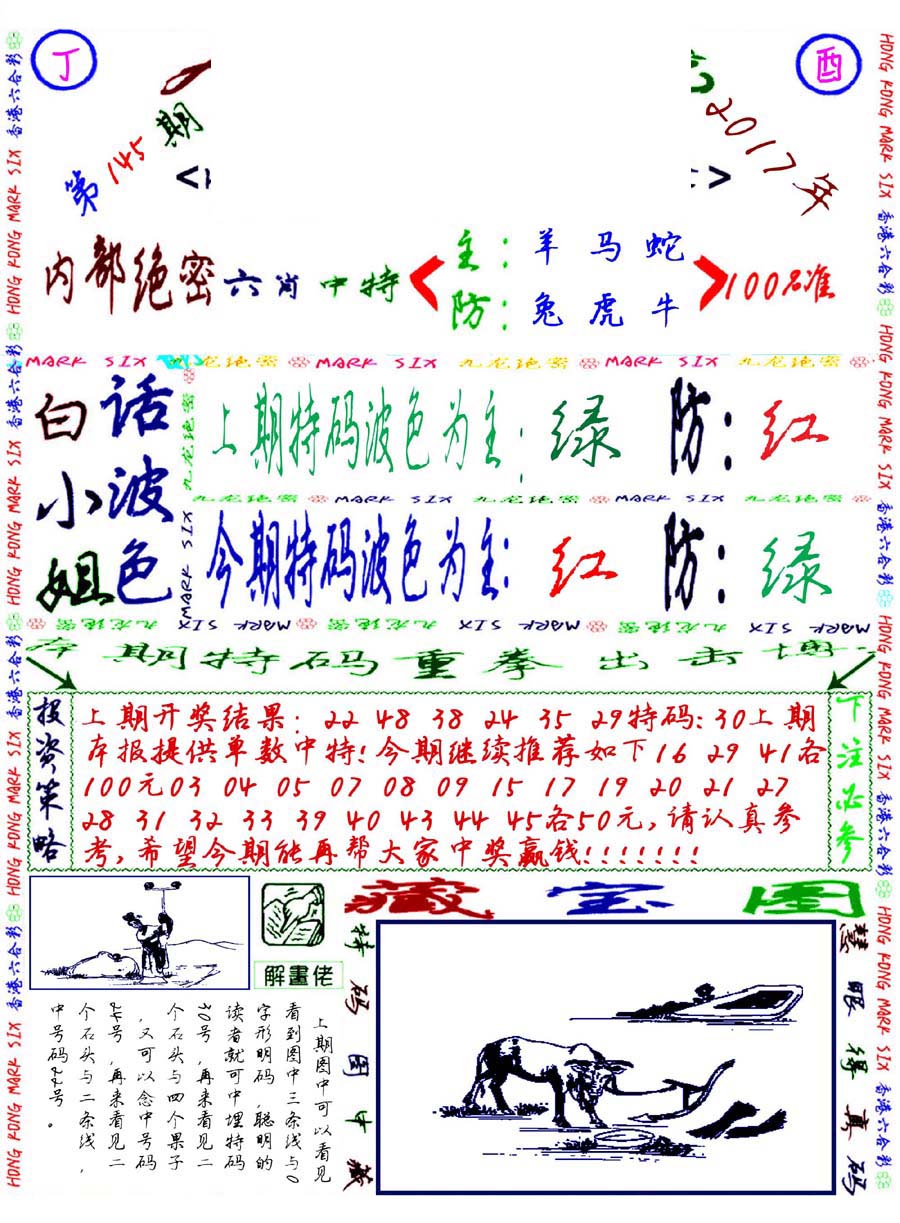 丁
酉
第145期
2017年
内部绝密六肖中特
主：羊 马 蛇
防：兔 虎 牛
100%准
MARK SIX 九龙绝密 MARK SIX 九龙绝密 MARK SIX 九龙绝密
白话小波姐色
上期特码波色为主：绿 防：红
九龙绝密 MARK SIX 九龙绝密 MARK SIX 九龙绝密
今期特码波色为主：红 防：绿
九龙绝密 MARK SIX 九龙绝密 MARK SIX 九龙绝密 MARK SIX
期特码重拳出击
投资策略
上期开奖结果：22 48 38 24 35 29特码：30上期
本报提供单数中特！今期继续推荐如下16 29 41各
100元03 04 05 07 08 09 15 17 19 20 21 27
28 31 32 33 39 40 43 44 45各50元，请认真参
考，希望今期能再帮大家中奖赢钱！！！！！！！
下注必参
藏宝图
解畫佬
上期图中可以看见
看到图中三条线与0
字形明码，聪明的
读者就可中埋特码
30号，再来看见二
个石头与四个果子
，又可以念中号码
24号，再来看见二
个石头与二条线，
中号码22号。
特码图中藏
慧眼得真码
HONG KONG MARK SIX 香港六合彩 HONG KONG MARK SIX 香港六合彩 HONG KONG MARK SIX 香港六合彩 HONG KONG MARK SIX 香港六合彩
HONG KONG MARK SIX 香港六合彩 HONG KONG MARK SIX 香港六合彩 HONG KONG MARK SIX 香港六合彩 HONG KONG MARK SIX 香港六合彩